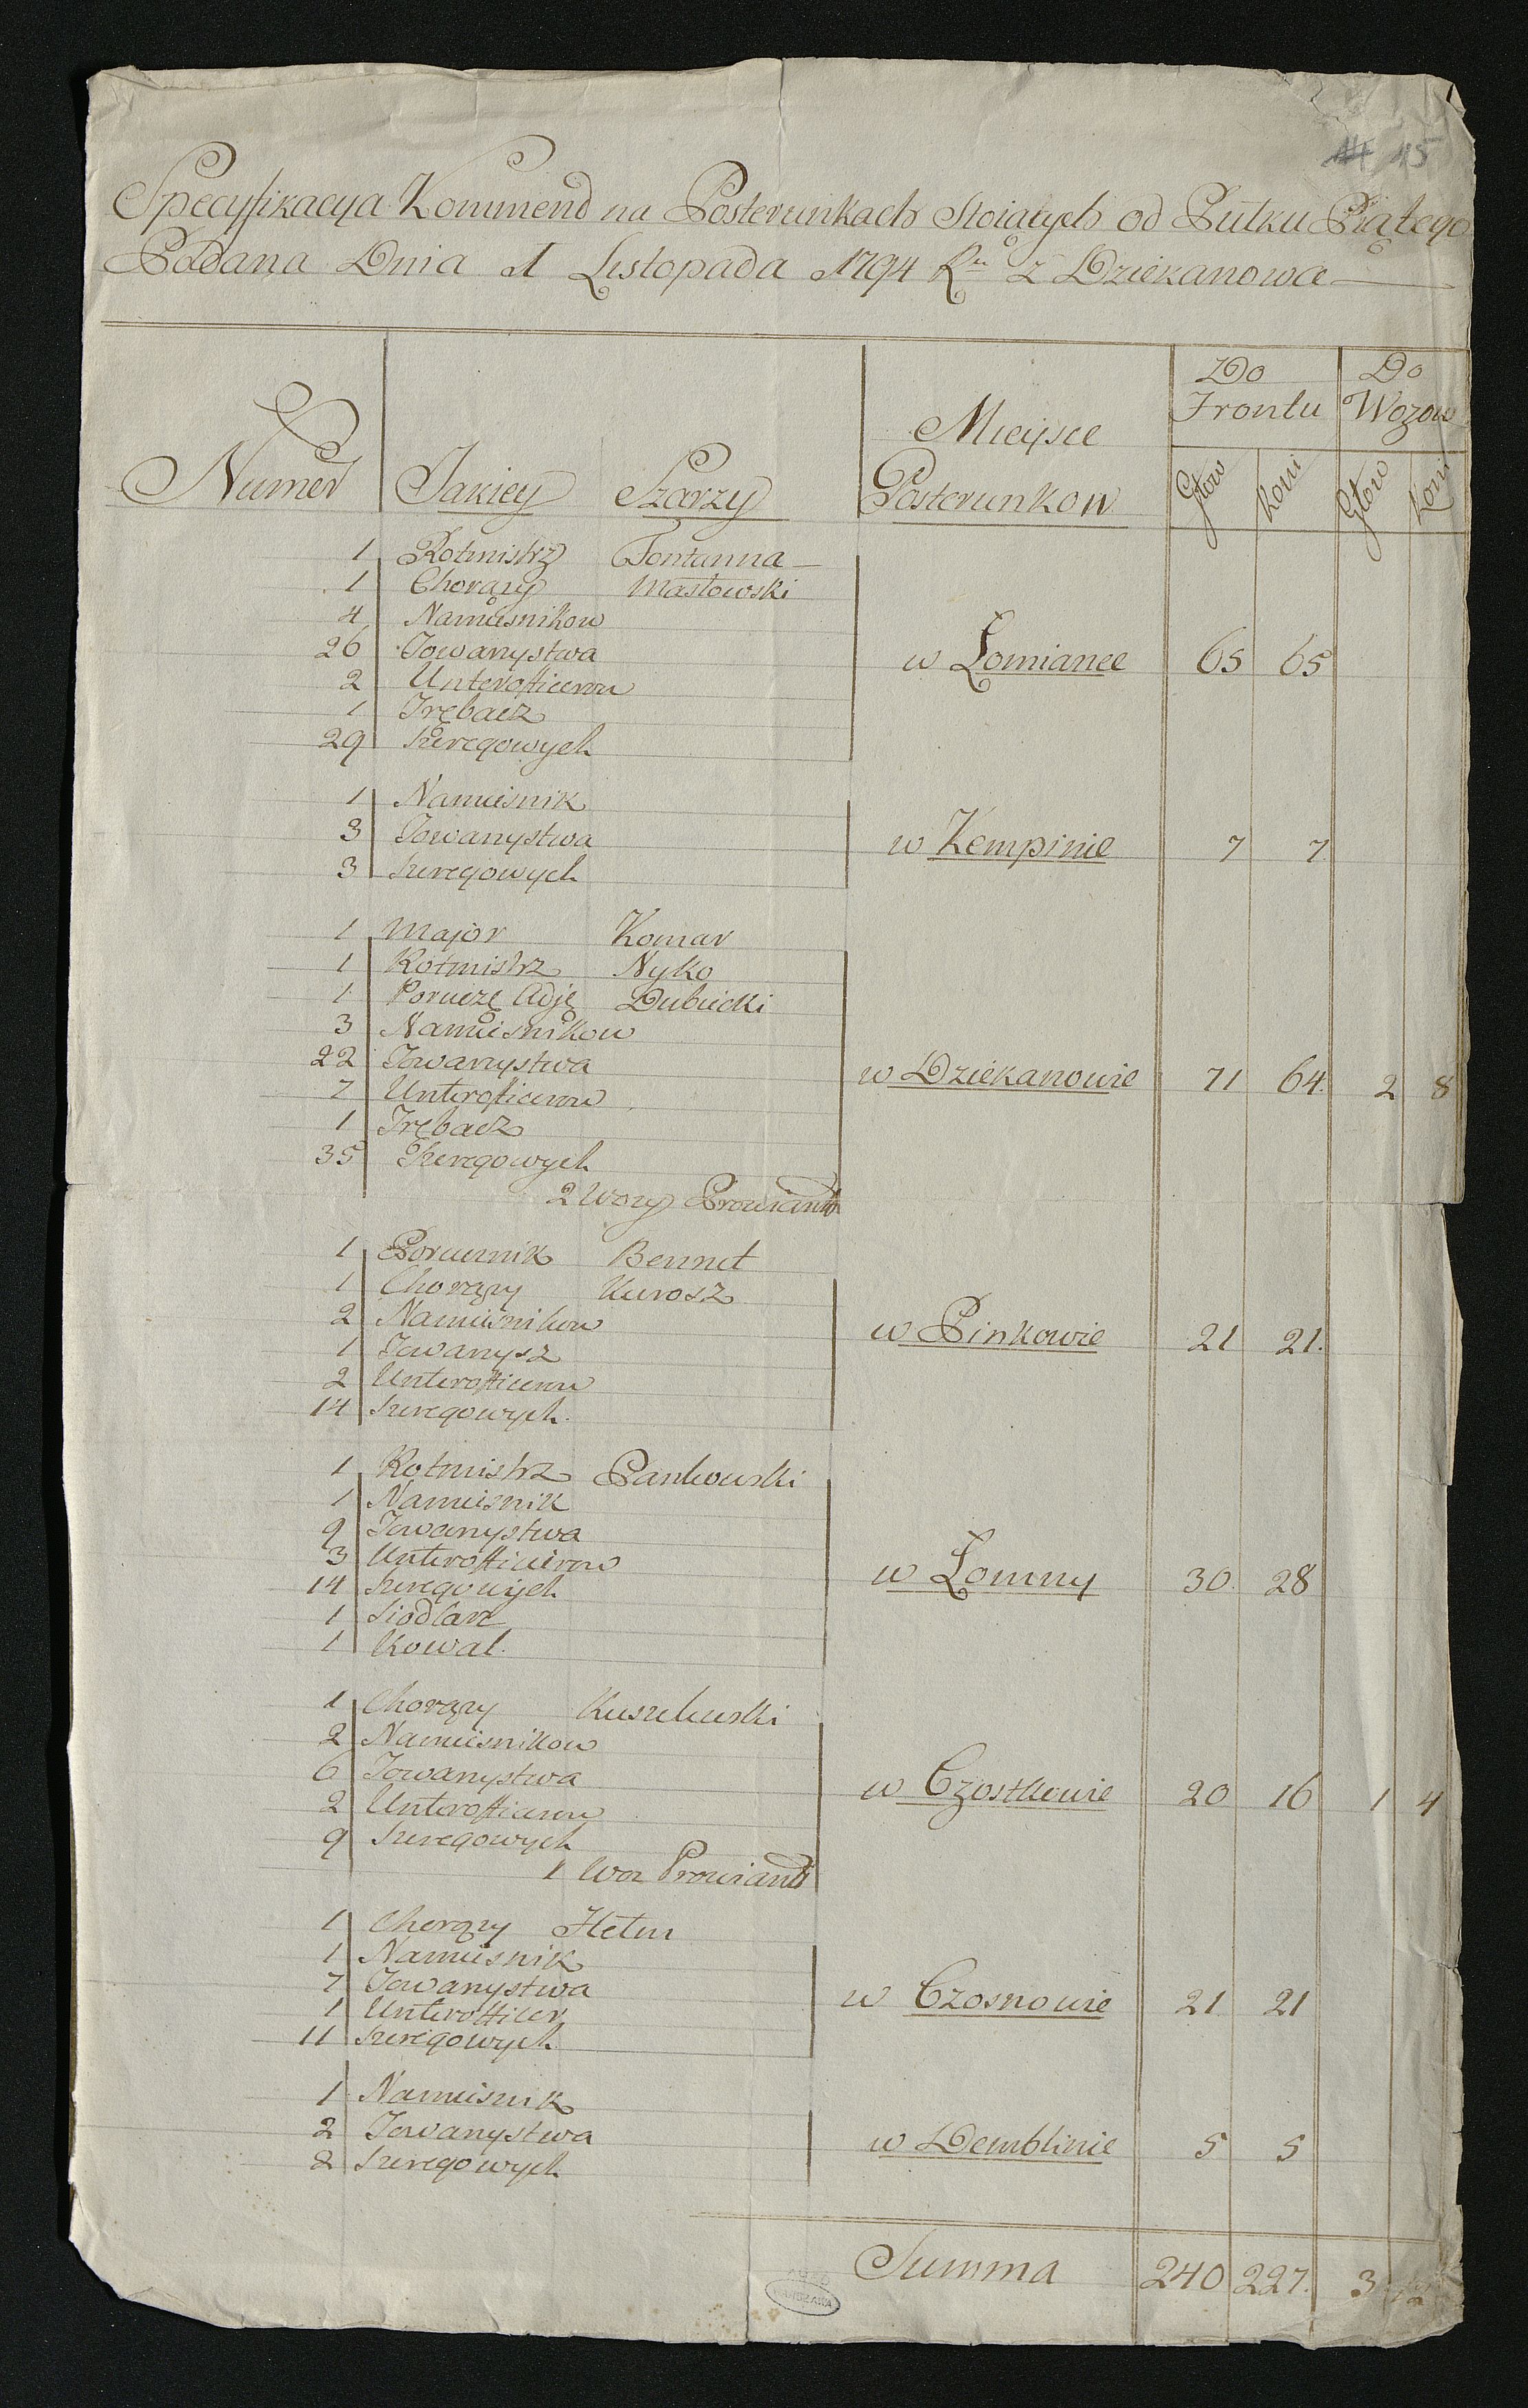 14 15
Specyfikacya Kommend na Posterunkach Stoiących od Pułku Piątego
Podana Dnia 1 Listopada 1794 Ru z Dziekanowa
Do Do
Frontu Wozow
Mieysce
Numer Jakiey Szarzy Posterunkow Głow Koni Głow Koni
1 Rotmistrz Fontanna
1 Chorąży Masłowski
4 Namiesnikow
26 Towarzystwa
w Łomiance 65 65
2 Unterofficerow
1 Trębacz
29 Szeregowych
1 Namiesnik
3 Towarzystwa
w Kempinie 7 7
3 Szeregowych
1 Major Komar
1 Rotmistrz Nyko
1 Porucz Adje Dubiecki
3 Namiesnikow
22 Towarzystwa
w Dziekanowie 71 64 2 8
7 Unterofficerow
1 Trębacz
35 Szeregowych
2 Wozy Prowiant
1 Porucznik Bennet
1 Chorąży Kurosz
2 Namiesnikow
w Pinkowie 21 21.
1 Towarzysz
2 Unterofficerow
14 Szeregowych.
1 Rotmistrz Pankowski
1 Namiesnik
9 Towarzystwa
3 Unterofficierow
w Łomny 30. 28
14 Szeregowych
1 Siodlarz
1 Kowal.
1 Chorąży
2 Namiesnikow
6 Towarzystwa
w Czostkowie 20 16 1 4
2 Unterofficerow
9 Szeregowych
1 Woz Prowiant
1 Chorąży
1 Namiesnik
7 Towarzystwa
w Czosnowie 21 21
1 Unterofficer
11 Szeregowych
1 Namiesnik
2 Towarzystwa
w Demblinie 5 5
2 Szeregowych
Summa 240 227. 3 12
WARSZAWA